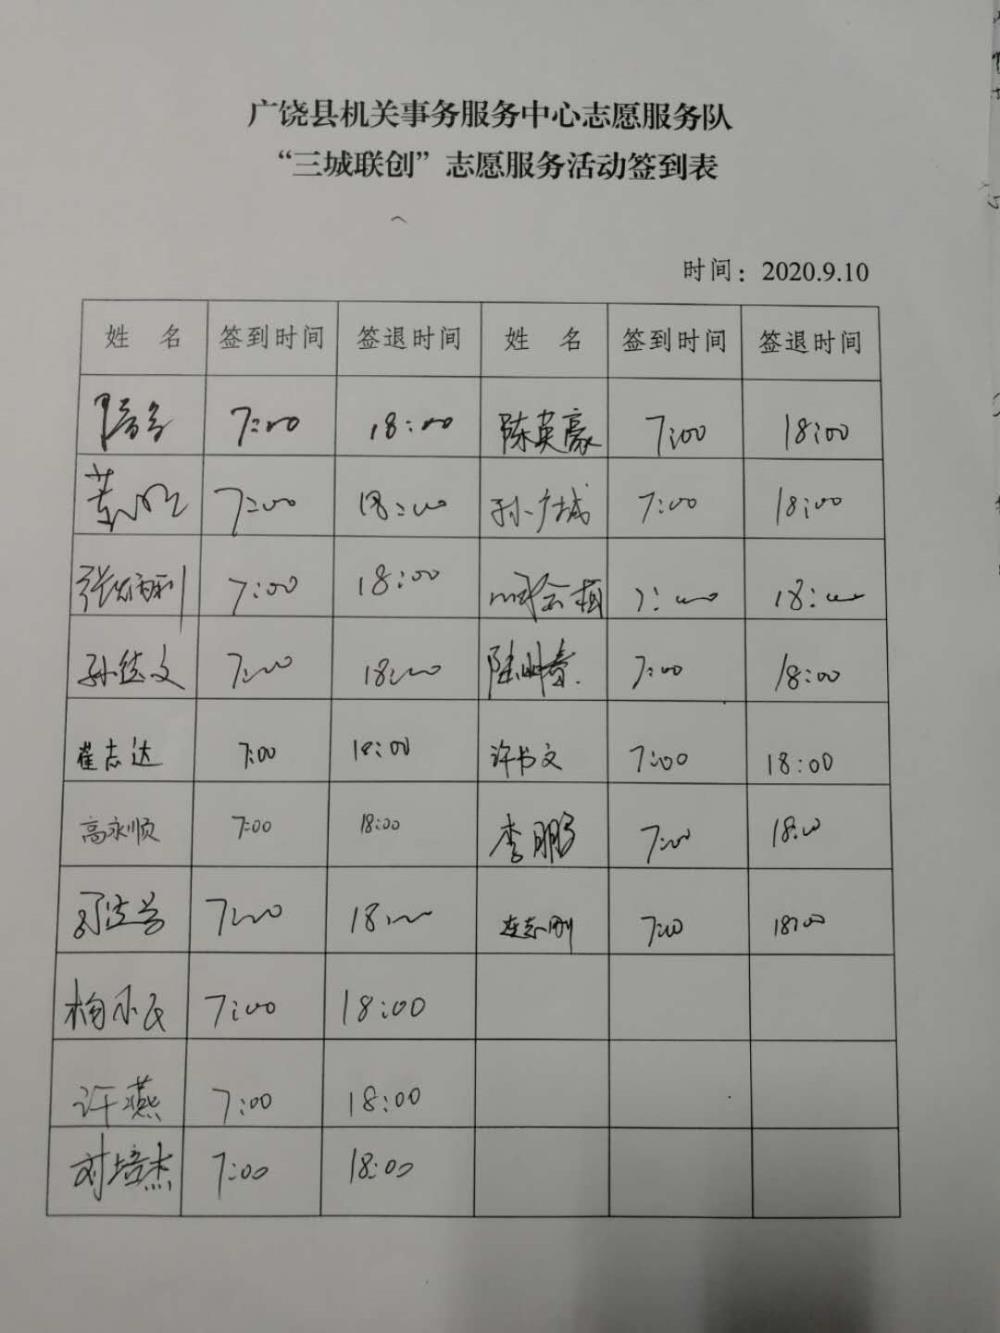 广饶县机关事务服务中心志愿服务队
“三城联创”志愿服务活动签到表
时间：2020.9.10
姓 名 签到时间 签退时间 姓 名 签到时间 签退时间
7:00 18:00 陈英豪 7:00 18:00
7:00 18:00 孙广城 7:00 18:00
张炳利 7:00 18:00 7:00 18:00
孙德文 7:00 18:00 7:00 18:00
崔志达 7:00 18:00 许书文 7:00 18:00
高永顺 7:00 18:00 李鹏 7:00 18:00
7:00 18:00 7:00 18:00
杨小民 7:00 18:00
许燕 7:00 18:00
刘培杰 7:00 18:00